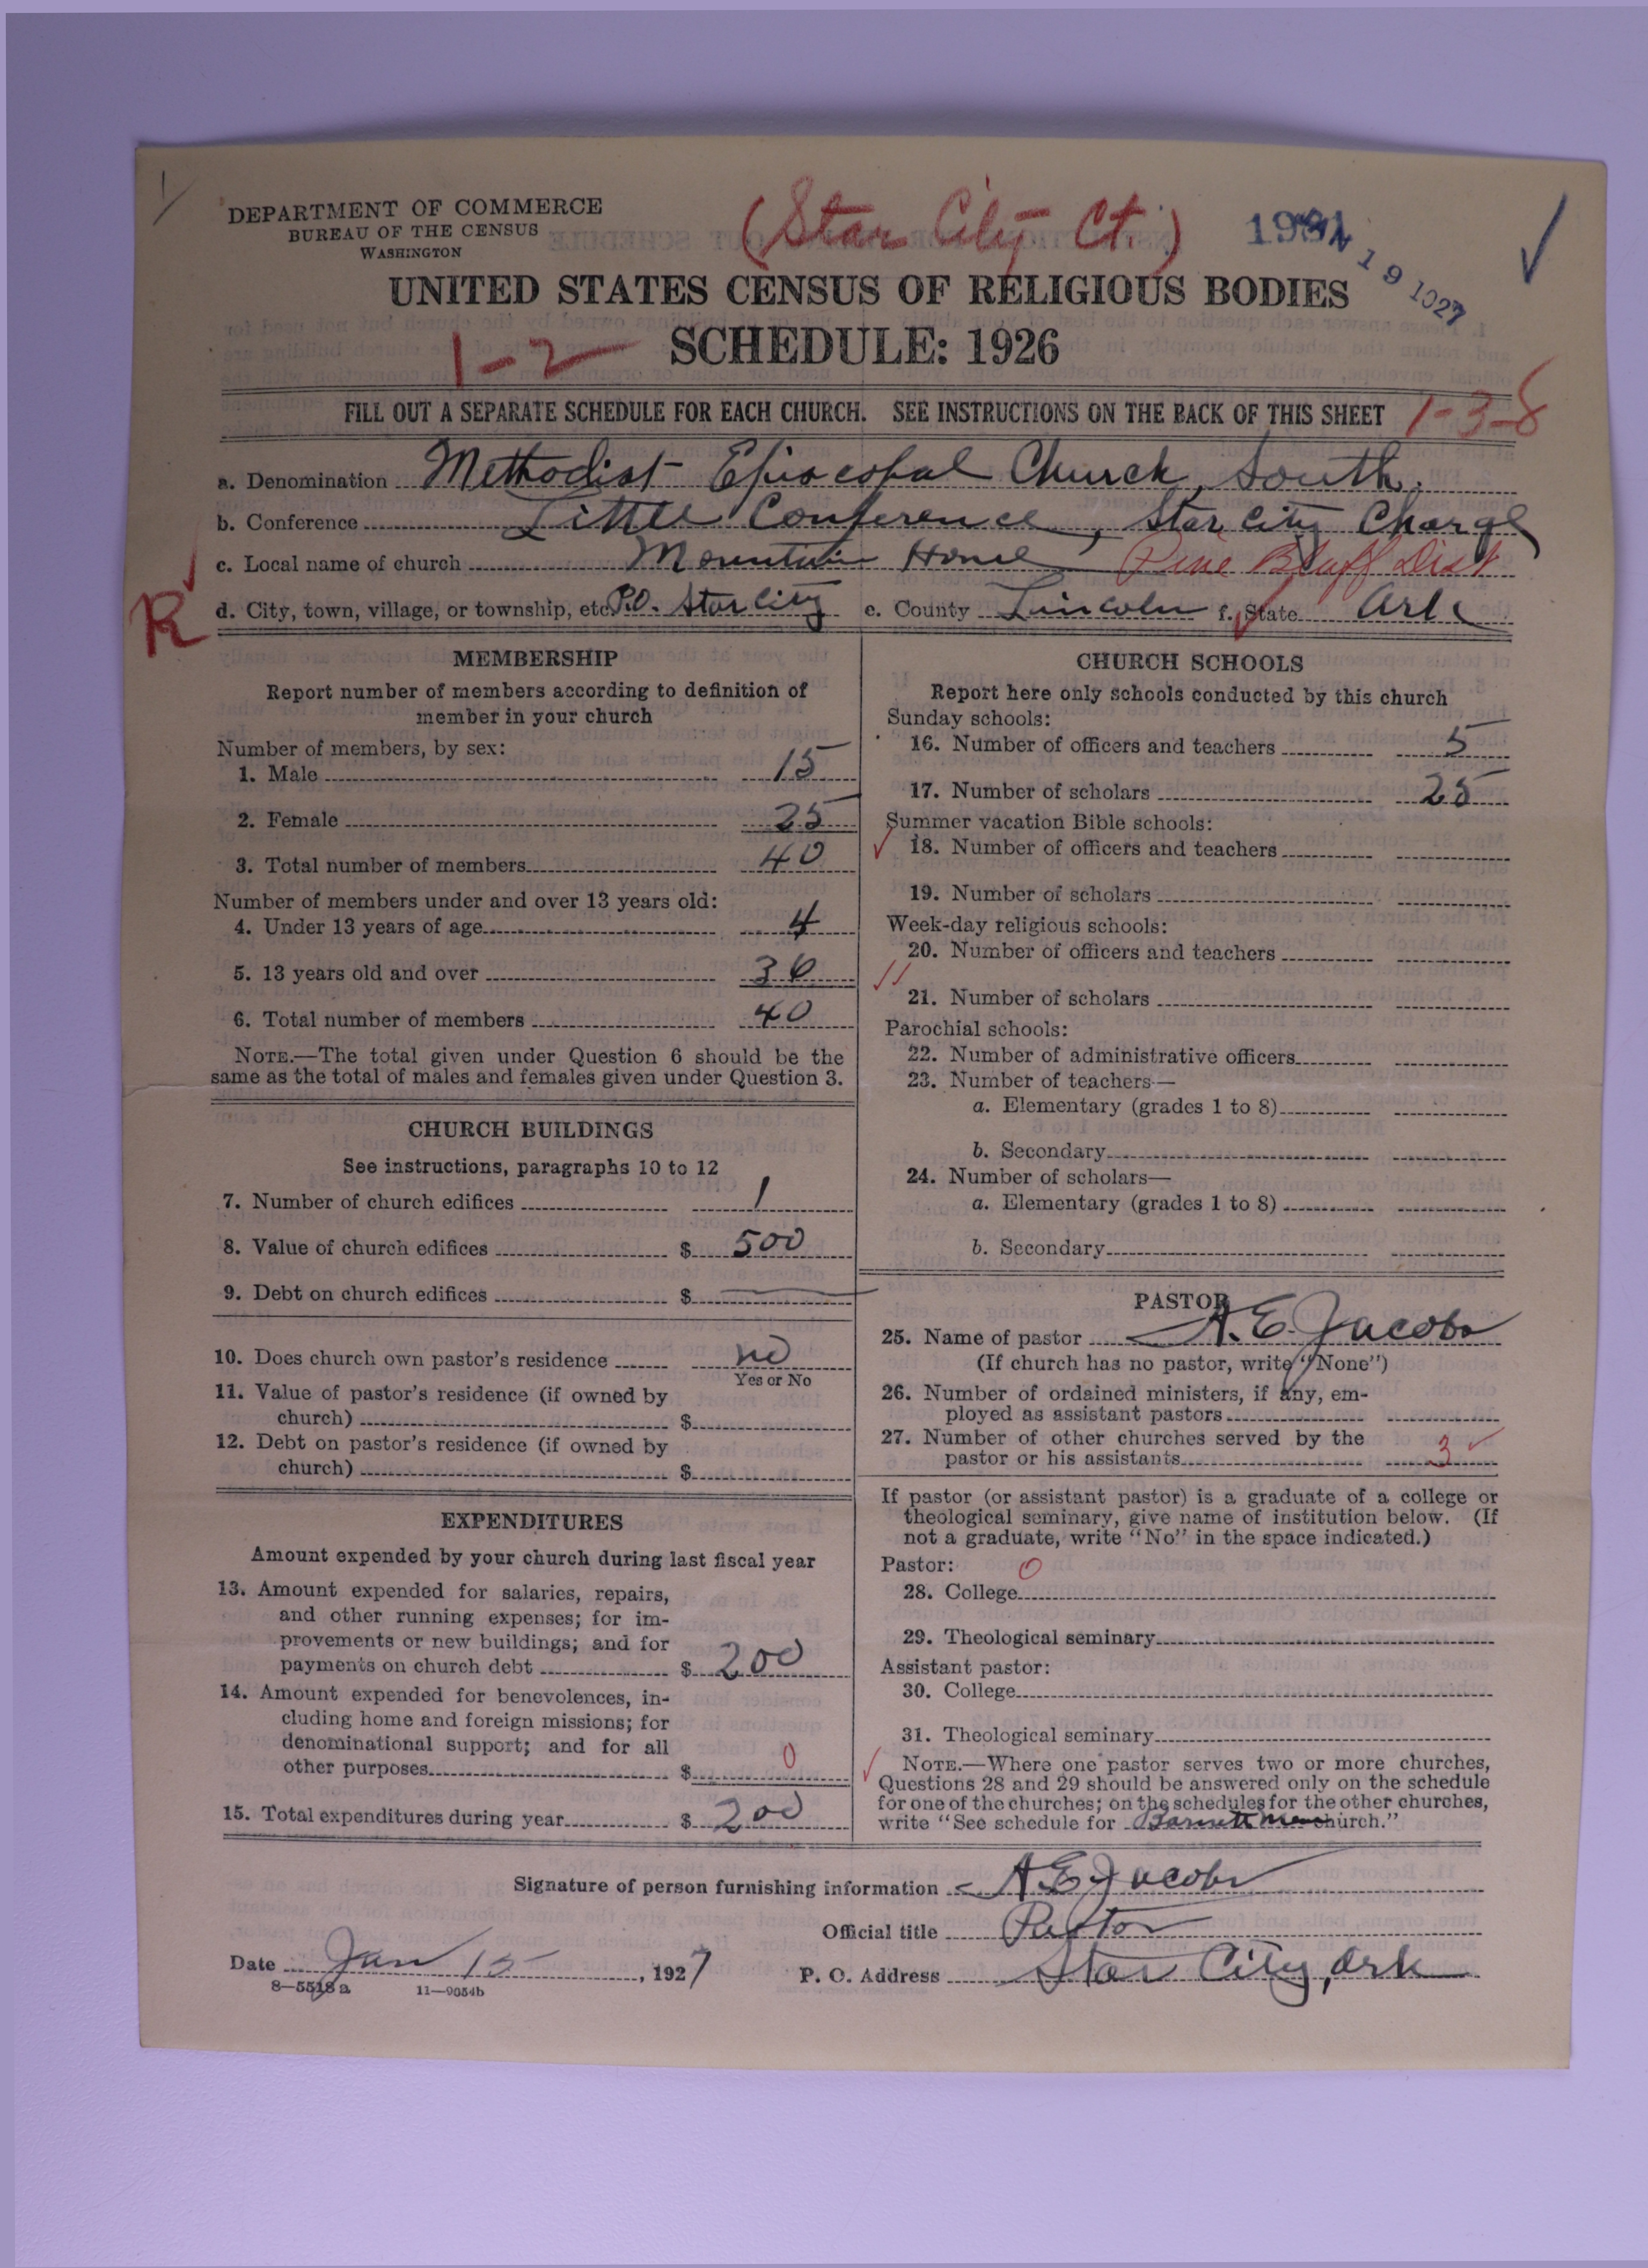 DEPARTMENT OF COMMERCE
BUREAU OF THE CENSUS
WASHINGTON
(Star City Ct.)
UNITED STATES CENSUS OF RELIGIOUS BODIES
SCHEDULE: 1926
1-2
FILL OUT A SEPARATE SCHEDULE FOR EACH CHURCH. SEE INSTRUCTIONS ON THE BACK OF THIS SHEET 1-3-8
a. Denomination Methodist Episcopal Church, South.
b. Conference Little Conference, Star City Charge
c. Local name of church Mountain Home Pine Bluff Dist
R d. City, town, village, or township, etc. P.O. Star City e. County Lincoln f. State Ark
MEMBERSHIP
Report number of members according to definition of
member in your church
Number of members, by sex:
1. Male 15
2. Female 25
3. Total number of members 40
Number of members under and over 13 years old:
4. Under 13 years of age 4
5. 13 years old and over 36
6. Total number of members 40
NOTE.—The total given under Question 6 should be the
same as the total of males and females given under Question 3.
CHURCH BUILDINGS
See instructions, paragraphs 10 to 12
7. Number of church edifices 1
8. Value of church edifices $ 500
9. Debt on church edifices $
10. Does church own pastor's residence no
Yes or No
11. Value of pastor's residence (if owned by
church) $
12. Debt on pastor's residence (if owned by
church) $
EXPENDITURES
Amount expended by your church during last fiscal year
13. Amount expended for salaries, repairs,
and other running expenses; for im-
provements or new buildings; and for
payments on church debt $ 200
14. Amount expended for benevolences, in-
cluding home and foreign missions; for
denominational support; and for all
other purposes $ 0
15. Total expenditures during year $ 200
CHURCH SCHOOLS
Report here only schools conducted by this church
Sunday schools:
16. Number of officers and teachers 5
17. Number of scholars 25
Summer vacation Bible schools:
18. Number of officers and teachers
19. Number of scholars
Week-day religious schools:
20. Number of officers and teachers
21. Number of scholars
Parochial schools:
22. Number of administrative officers
23. Number of teachers—
a. Elementary (grades 1 to 8)
b. Secondary
24. Number of scholars—
a. Elementary (grades 1 to 8)
b. Secondary
PASTOR
25. Name of pastor A. E. Jacobs
(If church has no pastor, write "None")
26. Number of ordained ministers, if any, em-
ployed as assistant pastors
27. Number of other churches served by the
pastor or his assistants 3
If pastor (or assistant pastor) is a graduate of a college or
theological seminary, give name of institution below. (If
not a graduate, write "No" in the space indicated.)
Pastor: 0
28. College
29. Theological seminary
Assistant pastor:
30. College
31. Theological seminary
NOTE.—Where one pastor serves two or more churches,
Questions 28 and 29 should be answered only on the schedule
for one of the churches; on the schedules for the other churches,
write "See schedule for church."
Signature of person furnishing information A. E. Jacobs
Official title Pastor
Date Jan 15, 1927 P. O. Address Star City, Ark
8—5518 a 11—9054b